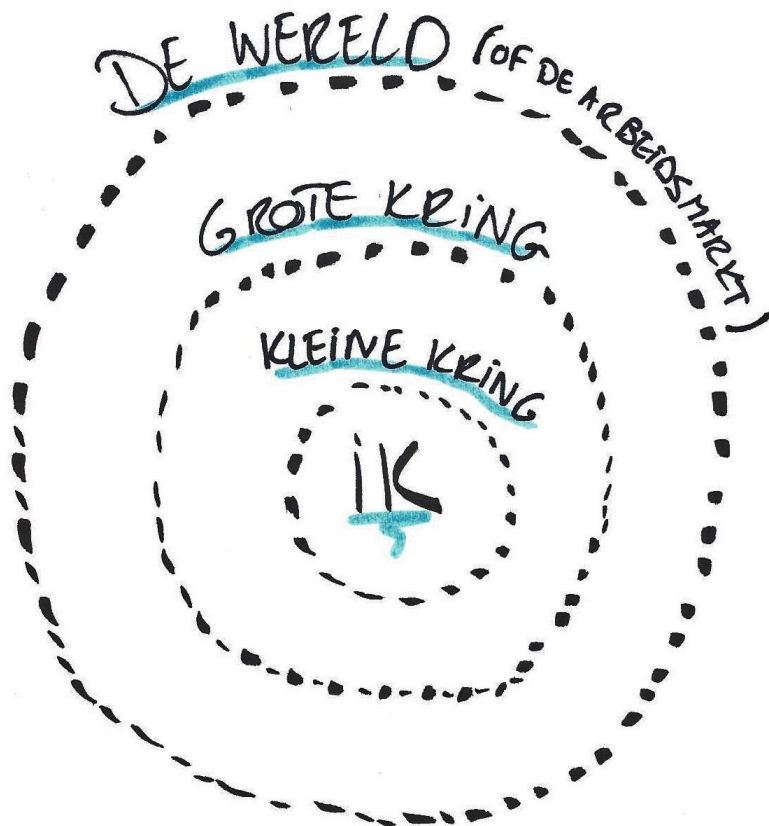 DE WERELD (OF DE ARBEIDSMARKT)
GROTE KRING
KLEINE KRING
iK